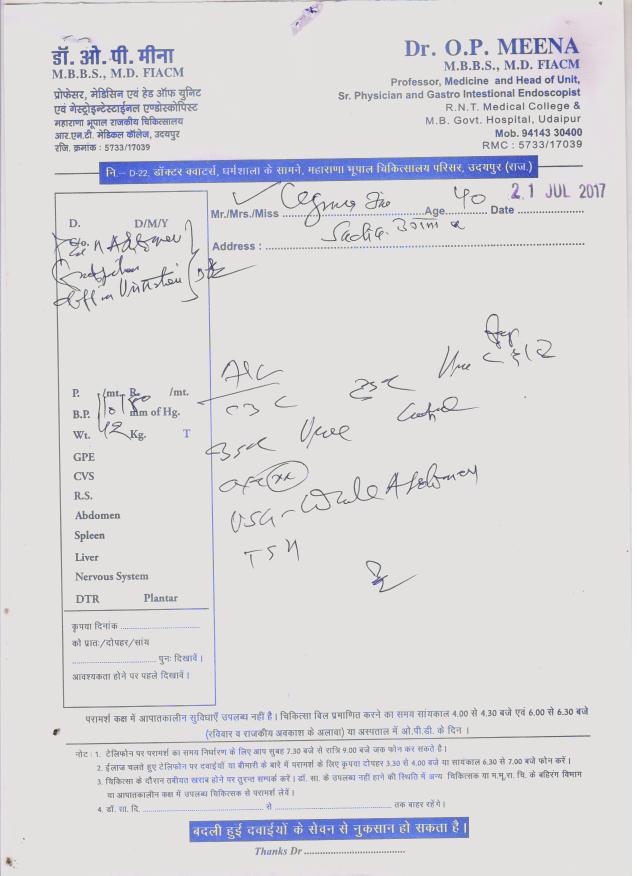 डॉ. ओ. पी. मीना
M.B.B.S., M.D. FIACM
प्रोफेसर, मेडिसिन एवं हेड ऑफ युनिट
एवं गेस्ट्रोइन्टेस्टाईनल एण्डोस्कोपिस्ट
महाराणा भूपाल राजकीय चिकित्सालय
आर.एन.टी. मेडिकल कॉलेज, उदयपुर
रजि. क्रमांक : 5733/17039
Dr. O.P. MEENA
M.B.B.S., M.D. FIACM
Professor, Medicine and Head of Unit,
Sr. Physician and Gastro Intestional Endoscopist
R.N.T. Medical College &
M.B. Govt. Hospital, Udaipur
Mob. 94143 30400
RMC : 5733/17039
नि.– D-22, डॉक्टर क्वाटर्स, धर्मशाला के सामने, महाराणा भूपाल चिकित्सालय परिसर, उदयपुर (राज.)
Mr./Mrs./Miss Age 40 Date 21 JUL 2017
Address :
D. D/M/Y
P. /mt. R. /mt.
B.P. 110/80 mm of Hg.
Wt. 42 Kg. T
GPE
CVS
R.S.
Abdomen
Spleen
Liver
Nervous System
DTR Plantar
CBC
USG - Whole Abdomen
TSH
कृपया दिनांक
को प्रातः/दोपहर/सांय
पुनः दिखावें।
आवश्यकता होने पर पहले दिखावें।
परामर्श कक्ष में आपातकालीन सुविधाएँ उपलब्ध नहीं है। चिकित्सा बिल प्रमाणित करने का समय सांयकाल 4.00 से 4.30 बजे एवं 6.00 से 6.30 बजे
(रविवार व राजकीय अवकाश के अलावा) या अस्पताल में ओ.पी.डी. के दिन।
नोट : 1. टेलिफोन पर परामर्श का समय निर्धारण के लिए आप सुबह 7.30 बजे से रात्रि 9.00 बजे जक फोन कर सकते है।
2. ईलाज चलते हुए टेलिफोन पर दवाईयों या बीमारी के बारे में परामर्श के लिए कृपया दोपहर 3.30 से 4.00 बजे या सायंकाल 6.30 से 7.00 बजे फोन करें।
3. चिकित्सा के दौरान तबीयत खराब होने पर तुरन्त सम्पर्क करें। डॉ. सा. के उपलब्ध नहीं हाने की स्थिति में अन्य चिकित्सक या म.भू.रा. चि. के बहिरंग विभाग
या आपातकालीन कक्ष में उपलब्ध चिकित्सक से परामर्श लेवें।
4. डॉ. सा. दि. से तक बाहर रहेंगे।
बदली हुई दवाईयों के सेवन से नुकसान हो सकता है।
Thanks Dr